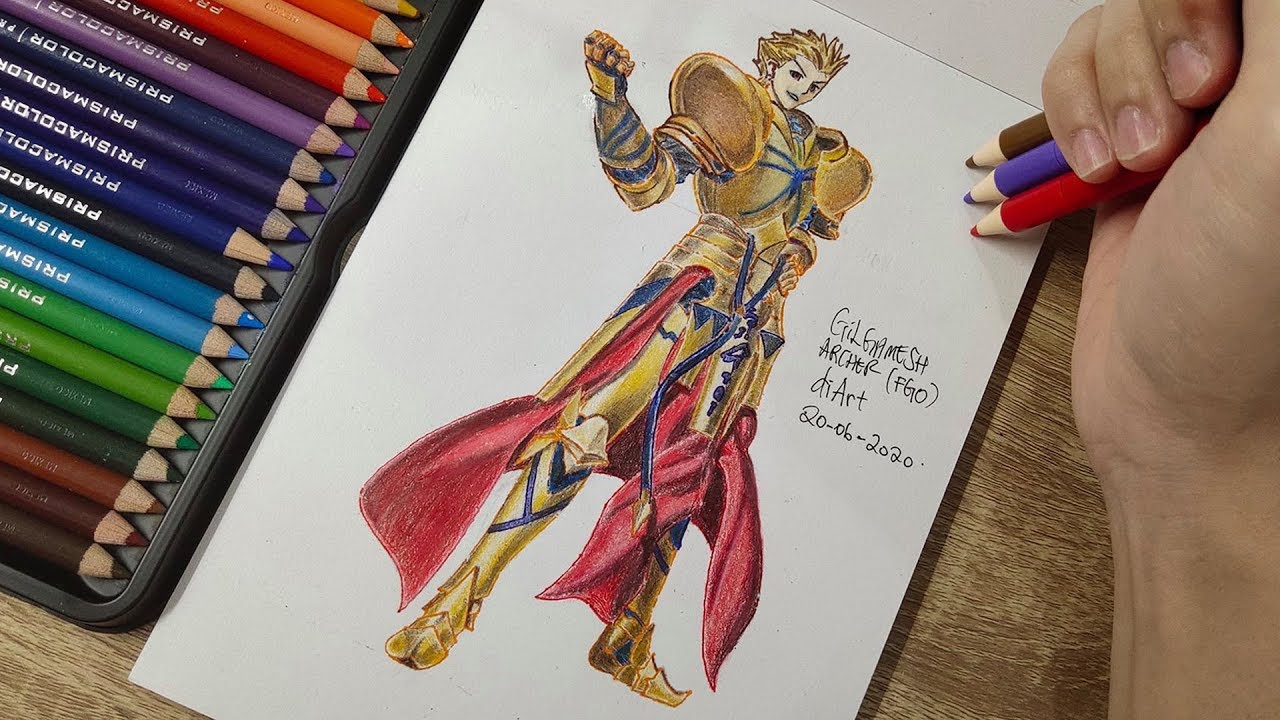 PRISMACOLOR
PRISMACOLOR
PRISMACOLOR
PRISMACOLOR
PRISMACOLOR
PRISMACOLOR
PRISMACOLOR
PRISMACOLOR
PRISMACOLOR
PRISMACOLOR
MEXICO
GILGAMESH
ARCHER (FGO)
diArt
20-06-2020.